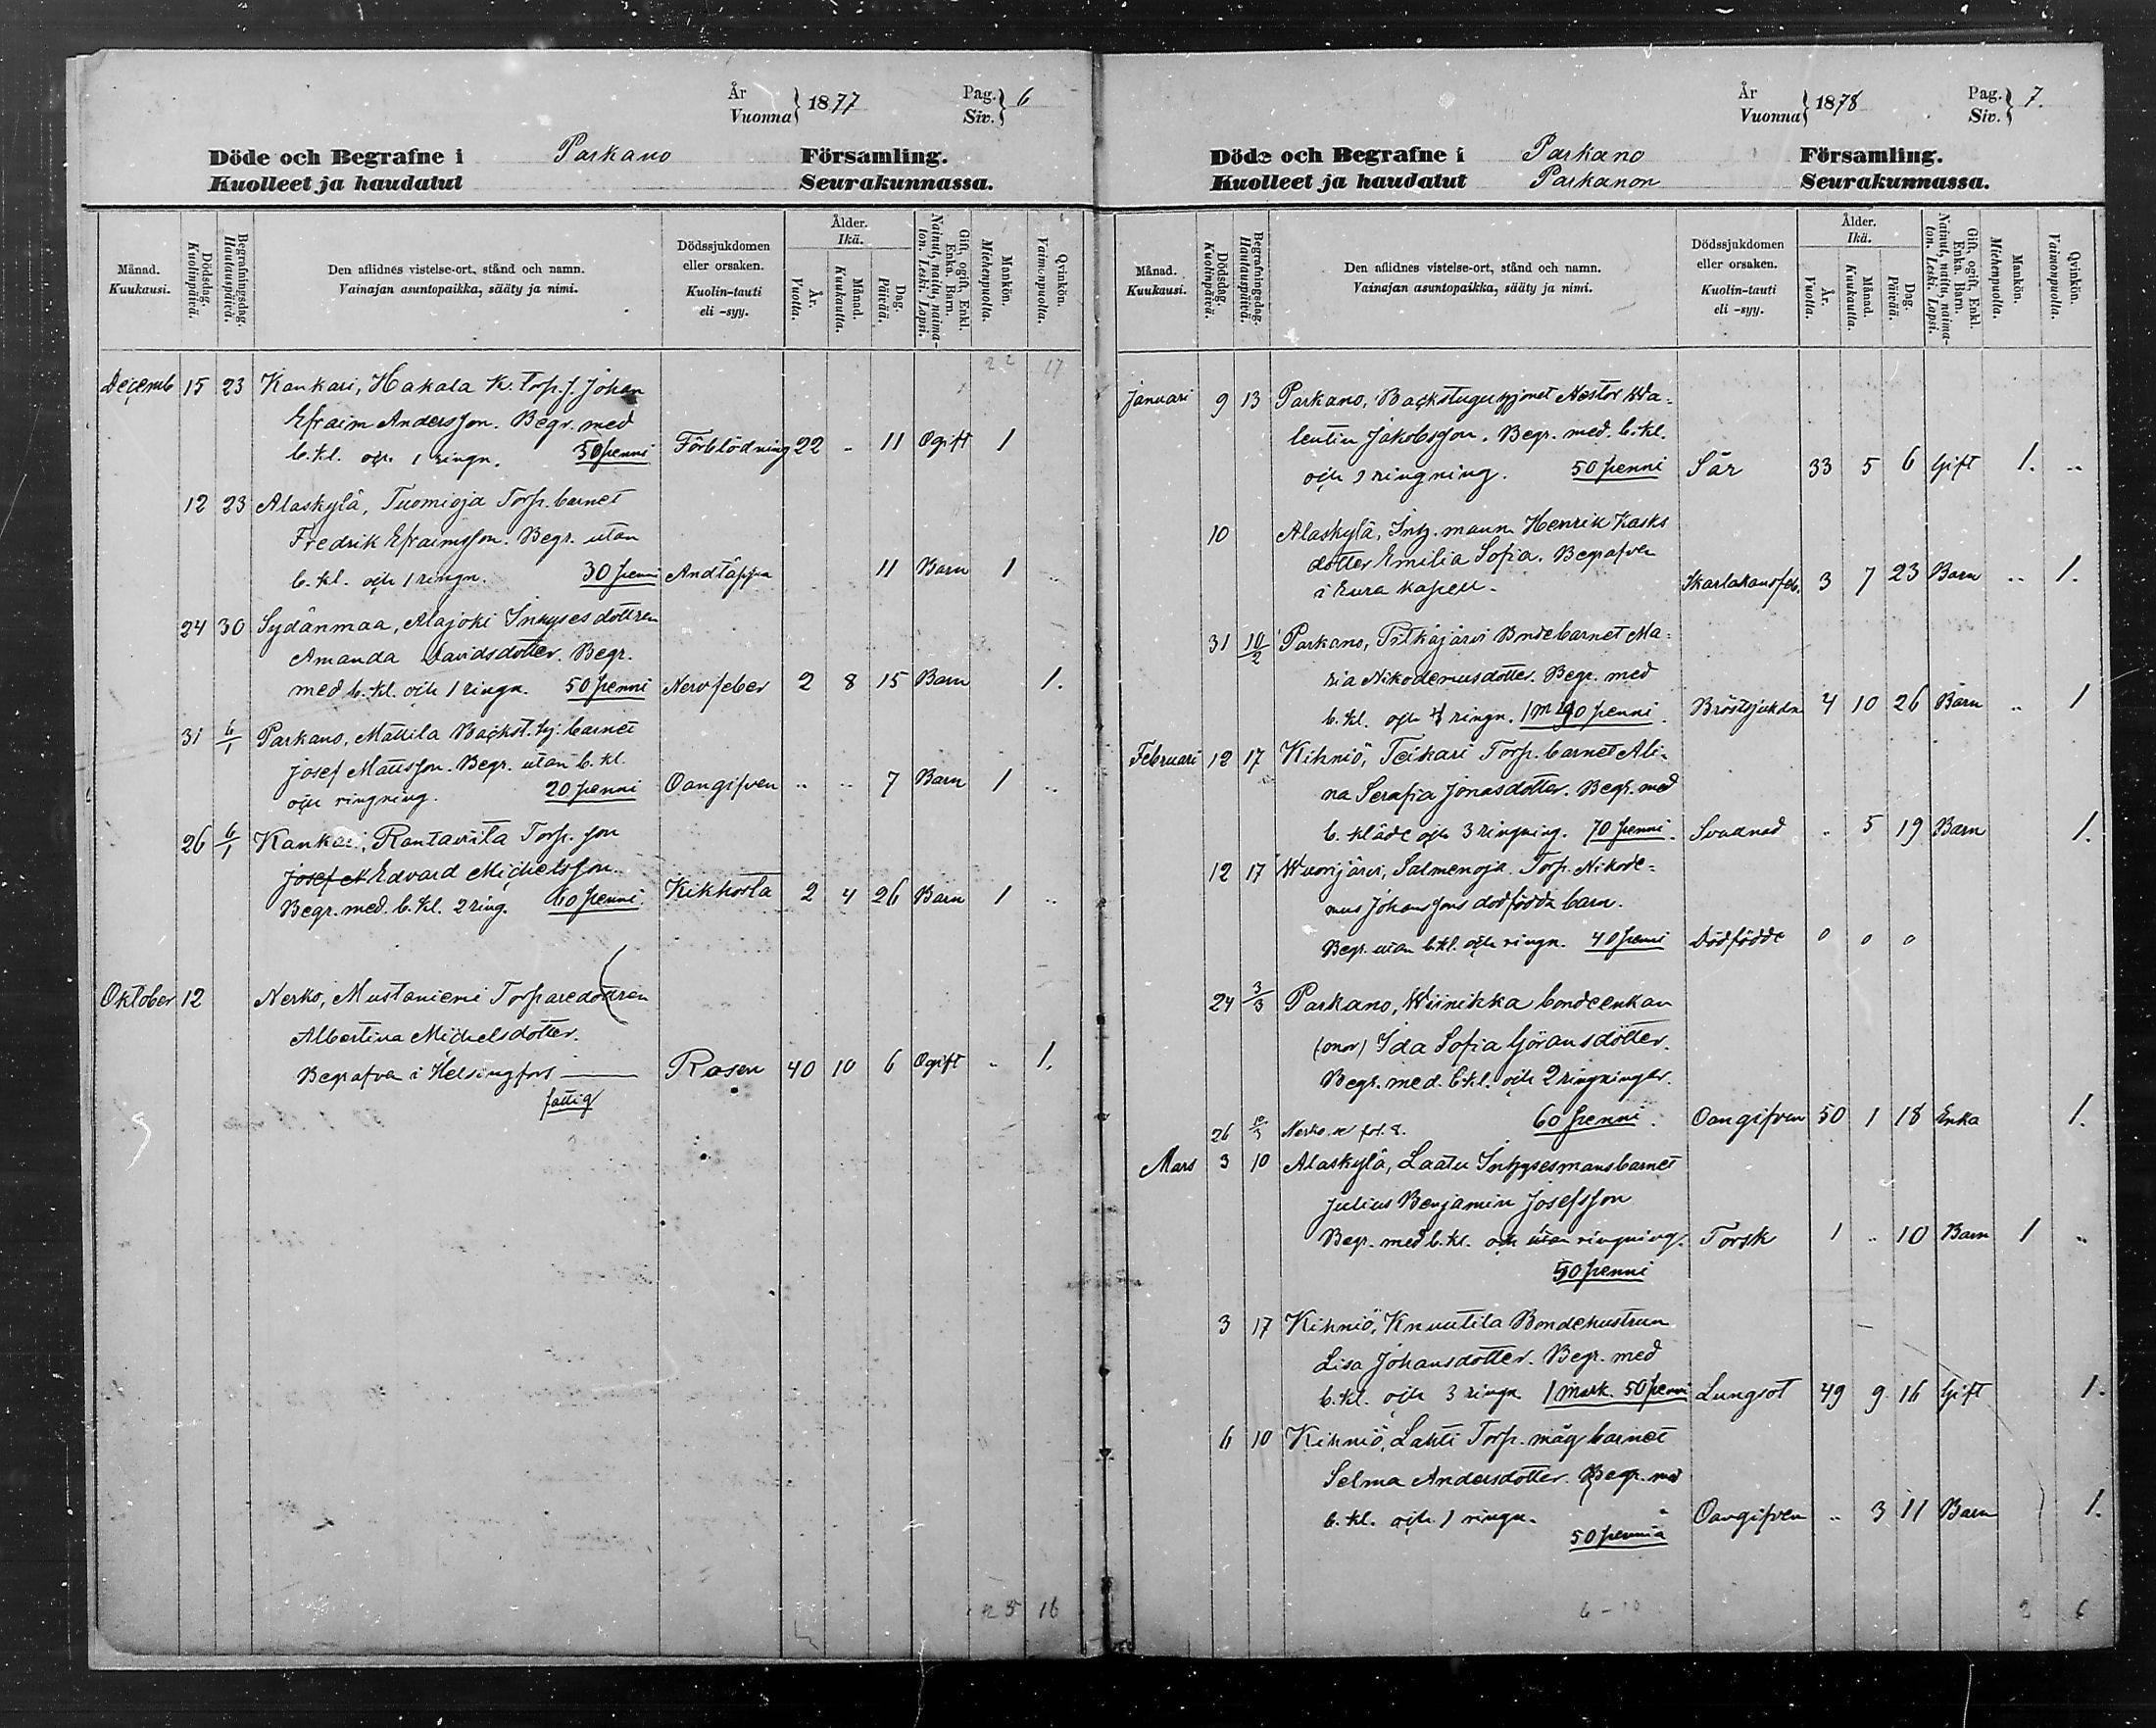 År
Vuonna } 1877
Pag.
Siv. } 6
Döde och Begrafne i Parkano Församling.
Kuolleet ja haudatut Seurakunnassa.
Månad. Kuukausi.
Dödsdag. Kuolinpäivä.
Begrafningsdag. Hautauspäivä.
Den aflidnes vistelse-ort, stånd och namn.
Vainajan asuntopaikka, sääty ja nimi.
Dödssjukdomen eller orsaken.
Kuolin-tauti eli -syy.
Ålder. Ikä.
År. Vuotta.
Månad. Kuukautta.
Dag. Päivää.
Gift, ogift, Enkl. Enka. Barn.
Nainut, naitu, naimaton. Leski. Lapsi.
Mankön. Miehenpuolta.
Qvinkön. Vaimonpuolta.
22 17
Decemb 15 23 Kankari, Hakala K. Torp. s. Johan
Efraim Andersson. Begr. med
b. kl. och 1 ringn. 50 penni Förblödning 22 - 11 Ogift 1
12 23 Alaskylä, Tuomioja Torp. barnet
Fredrik Efraimsson. Begr. utan
b. kl. och 1 ringn. 30 penni Andtäppa 11 Barn 1 ..
24 30 Sydänmaa, Alajoki Inhyses dottren
Amanda Davidsdotter. Begr.
med b. kl. och 1 ringn. 50 penni Nervfeber 2 8 15 Barn 1.
31 6/1 Parkano, Mattila Backst. hj. barnet
Josef Mattsson. Begr. utan b. kl.
och ringning. 20 penni Oangifven .. .. 7 Barn 1 ..
26 6/1 Kankari, Rantavita Torp. son
Josef M Edvard Michelsson.
Begr. med. b. kl. 2 ring. 60 penni. Kikhosta 2 4 26 Barn 1 ..
Oktober 12 Nerko, Mustaniemi Torparedottren
Albertina Michelsdotter.
Begrafven i Helsingfors Rosen 40 10 6 Ogift .. 1.
fattig
25 16
År
Vuonna } 1878
Pag.
Siv. } 7.
Döde och Begrafne i Parkano Församling.
Kuolleet ja haudatut Parkanon Seurakunnassa.
Månad. Kuukausi.
Dödsdag. Kuolinpäivä.
Begrafningsdag. Hautauspäivä.
Den aflidnes vistelse-ort, stånd och namn.
Vainajan asuntopaikka, sääty ja nimi.
Dödssjukdomen eller orsaken.
Kuolin-tauti eli -syy.
Ålder. Ikä.
År. Vuotta.
Månad. Kuukautta.
Dag. Päivää.
Gift, ogift, Enkl. Enka. Barn.
Nainut, naitu, naimaton. Leski. Lapsi.
Mankön. Miehenpuolta.
Qvinkön. Vaimonpuolta.
Januari 9 13 Parkano, Backstuguhjonet Nestor Wa-
lentin Jakobsson. Begr. med. b. kl.
och 1 ringning. 50 penni Sår 33 5 6 Gift 1. ..
10 Alaskylä, Inh. mann Henrik Kasks
dotter Emilia Sofia. Begrafven
i Eura kapell. Skarlakansfeb. 3 7 23 Barn .. 1.
31 10/2 Parkano, Pitkäjärvi Bondebarnet Ma-
ria Nikodemusdotter. Begr. med
b. kl. och ringn. 1 m 40 penni. Bröstsjukdn 4 10 26 Barn .. 1
Februari 12 17 Kihniö, Teikari Torp. barnet Ali-
na Serafia Jonasdotter. Begr. med
b. kläde och 3 ringning. 70 penni. Svadnad .. 5 19 Barn 1.
12 17 Wuorijärvi, Salmenoja Torp. Nikode-
mus Johanssons dödfödda barn.
Begr. utan b. kl. och ringn. 40 penni Dödfödde 0 0 0
24 3/3 Parkano, Wiinikka bondeenkan
(mor) Ida Sofia Göransdotter.
Begr. med. b. kl. och 2 ringningar.
60 penni. Oangifven 50 1 18 Enka 1.
26 Nerko. se fol. 8.
Mars 3 10 Alaskylä, Laatu Inhysesmansbarnet
Julius Benjamin Josefsson
Begr. med b. kl. och utan ringning. Torsk 1 .. 10 Barn 1 ..
50 penni
3 17 Kihniö, Knuutila Bondehustrun
Lisa Johansdotter. Begr. med
b. kl. och 3 ringn 1 mark. 50 penni Lungsot 49 9 16 Gift 1.
6 10 Kihniö, Lahti Torp. måg barnet
Selma Andersdotter. Begr. med
b. kl. och 1 ringn. Oangifven .. 3 11 Barn 1.
50 penniä
6 - 10 2 6